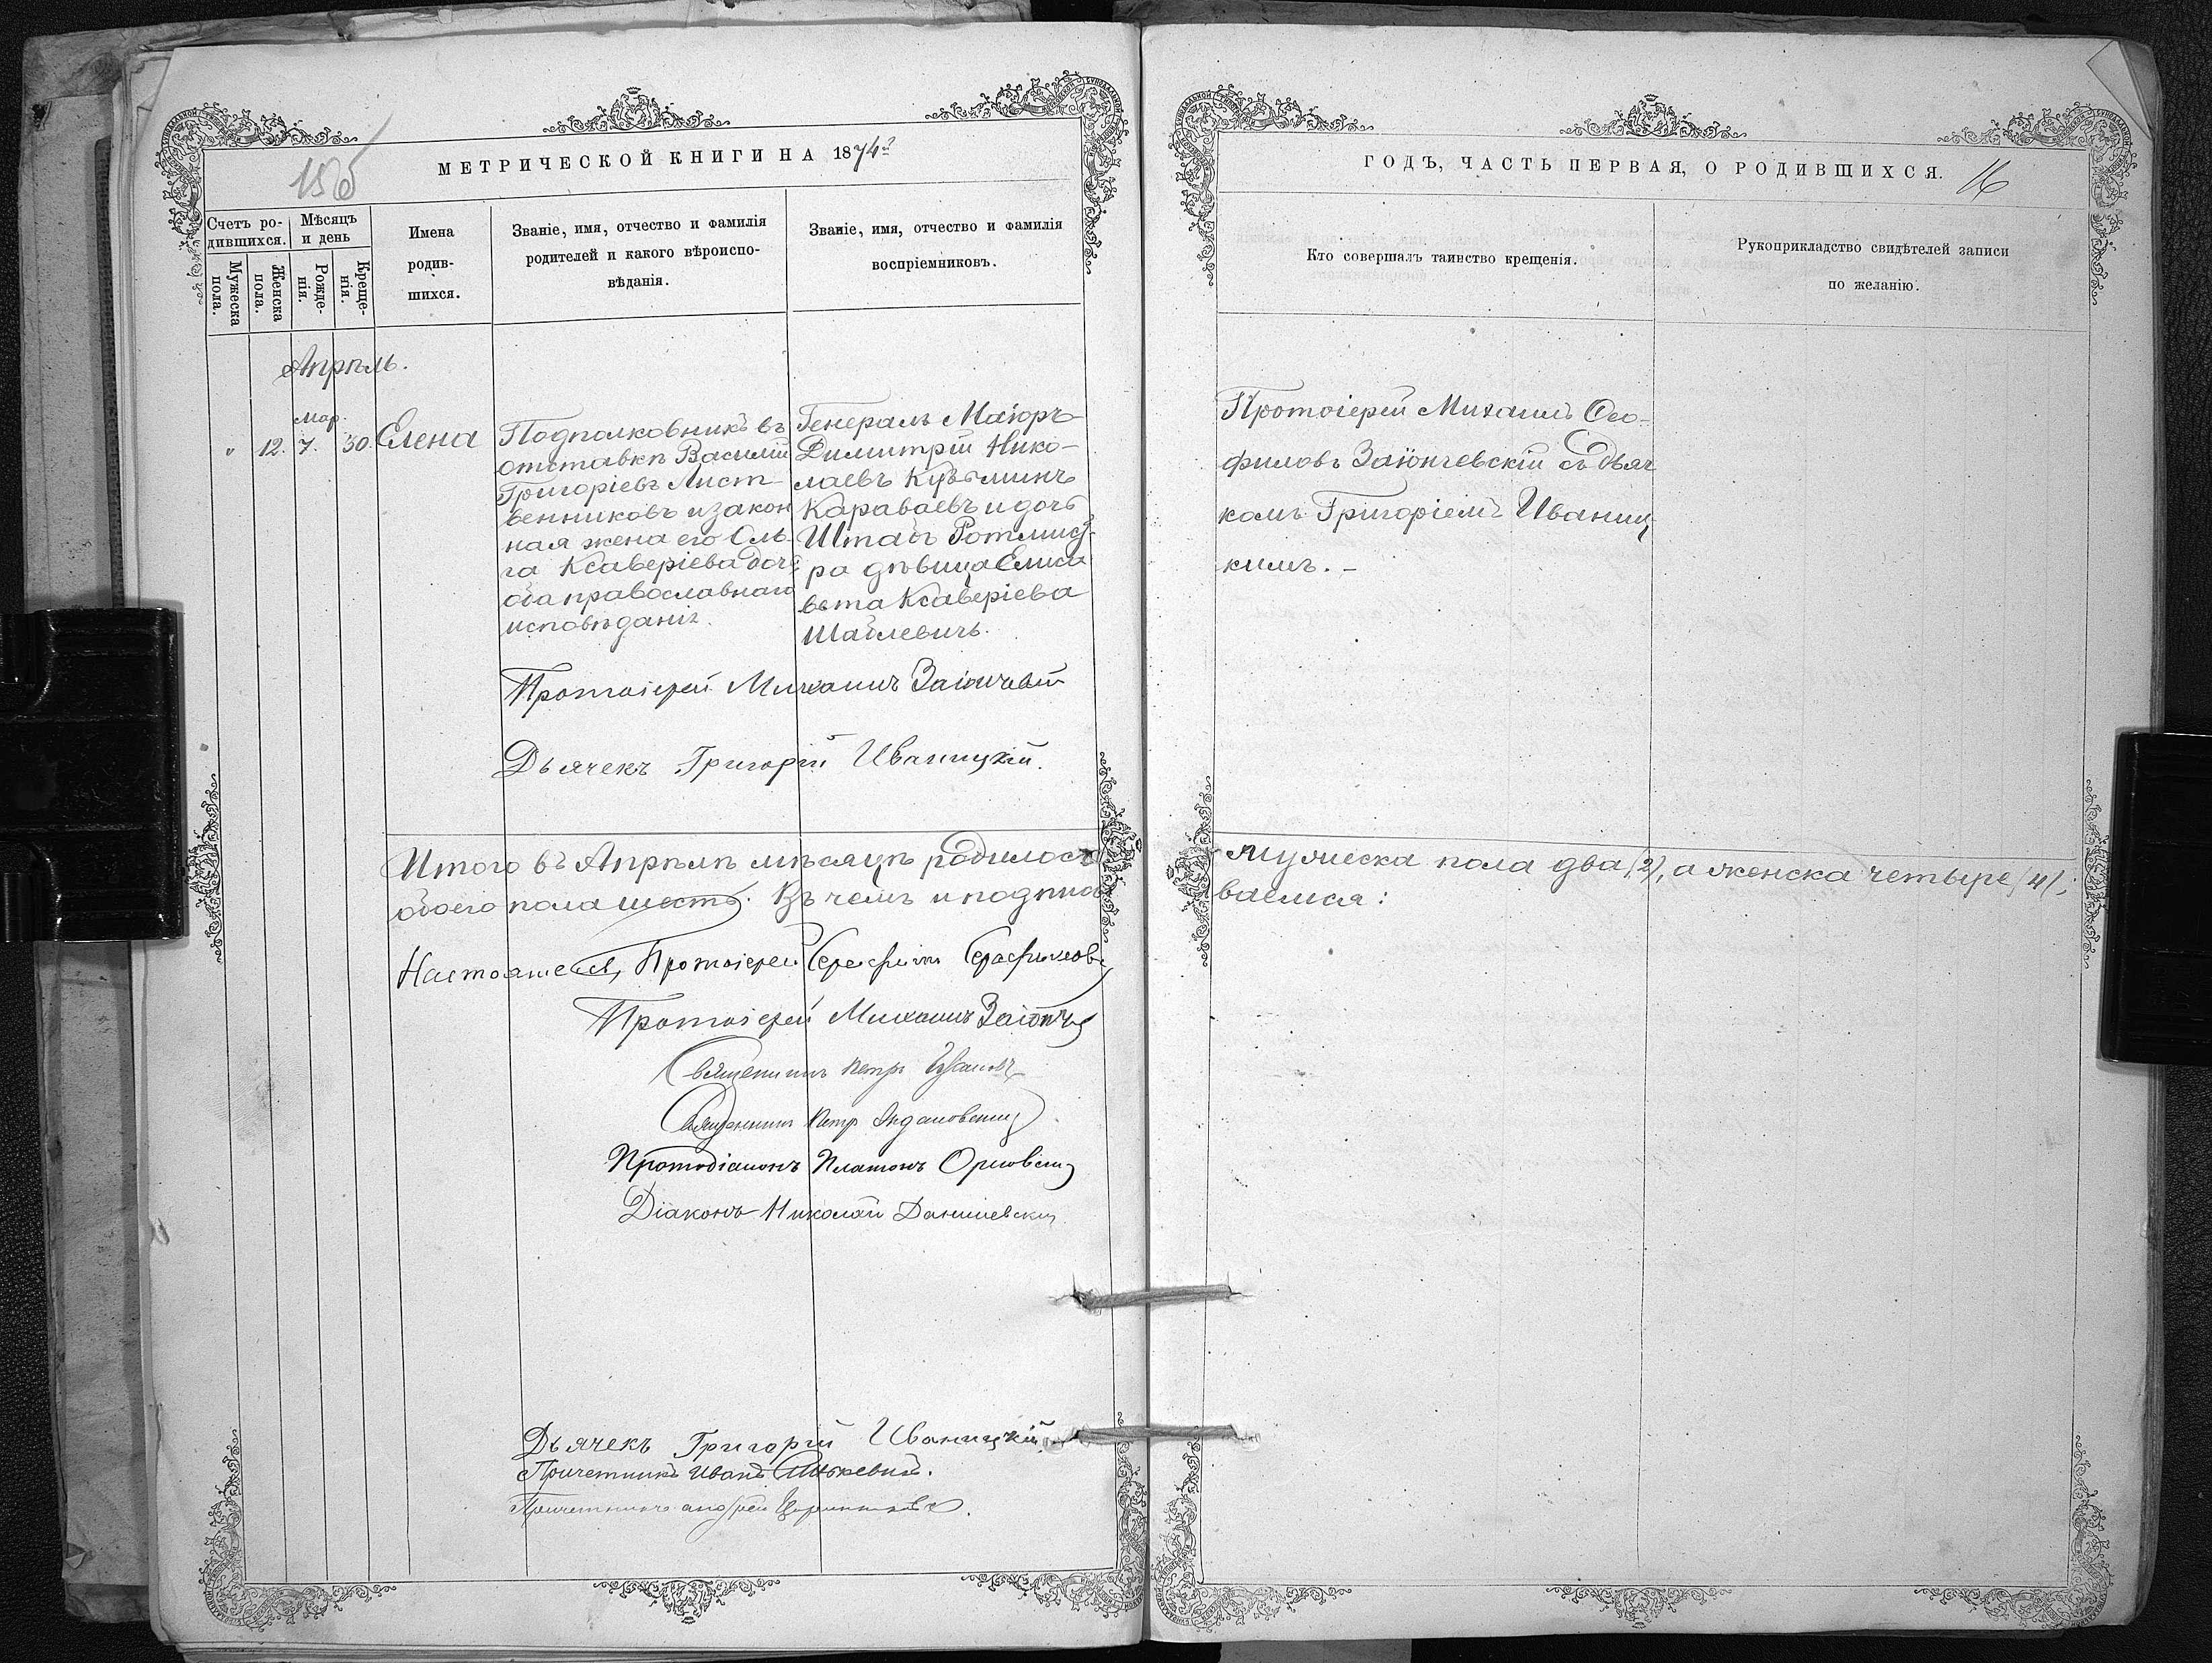 156
МЕТРИЧЕСКОЙ КНИГИ НА 1874й
Счетъ ро-
дившихся.
Мѣсяцъ
и день
Мужеска
пола.
Женска
пола.
Рожде-
нія.
Креще-
нія.
Имена
родив-
шихся.
Званіе, имя, отчество и фамилія
родителей и какого вѣроиспо-
вѣданія.
Званіе, имя, отчество и фамилія
воспріемниковъ.
Апрѣль.
Мар.
" 12. 7. 30. Елена
Подполковникъ въ
отставкѣ Василій
Григоріевъ Лист-
венниковъ и закон
ная жена его Оль-
га Ксаверіева доч
оба православнаго
исповѣданія.
Генералъ Маіоръ
Димитрій Нико-
лаевъ Кузьминъ
Караваевъ и дочь
Штабъ Ротмист-
ра дѣвица Елиса
вета Ксаверіева
Шаблевичъ.
Протоіерей Михаилъ Заіончевскій
Дьячекъ Григорій Иваницкій.
Итого въ Апрѣлѣ мѣсяцѣ родилось
обоего пола шесть. Въ чемъ и подписы
Настоятель, Протоіерей Серафимъ Серафимовъ
Протоіерей Михаилъ Заіонч
Священникъ Петръ
Священникъ Петръ
Протодіаконъ Платонъ Орловскій
Діаконъ Николай Данилевскій
Дьячекъ Григорій Иваницкій.
Причетникъ Иванъ
Причетникъ Андрей
ГОДЪ, ЧАСТЬ ПЕРВАЯ, О РОДИВШИХСЯ.
16
Кто совершалъ таинство крещенія.
Рукоприкладство свидѣтелей записи
по желанію.
Протоіерей Михаилъ Ѳео-
филовъ Заіончевскій съ дьяч
комъ Григоріемъ Иваниц
кимъ. –
мужеска пола два (2), а женска четыре (4);
ваемся: